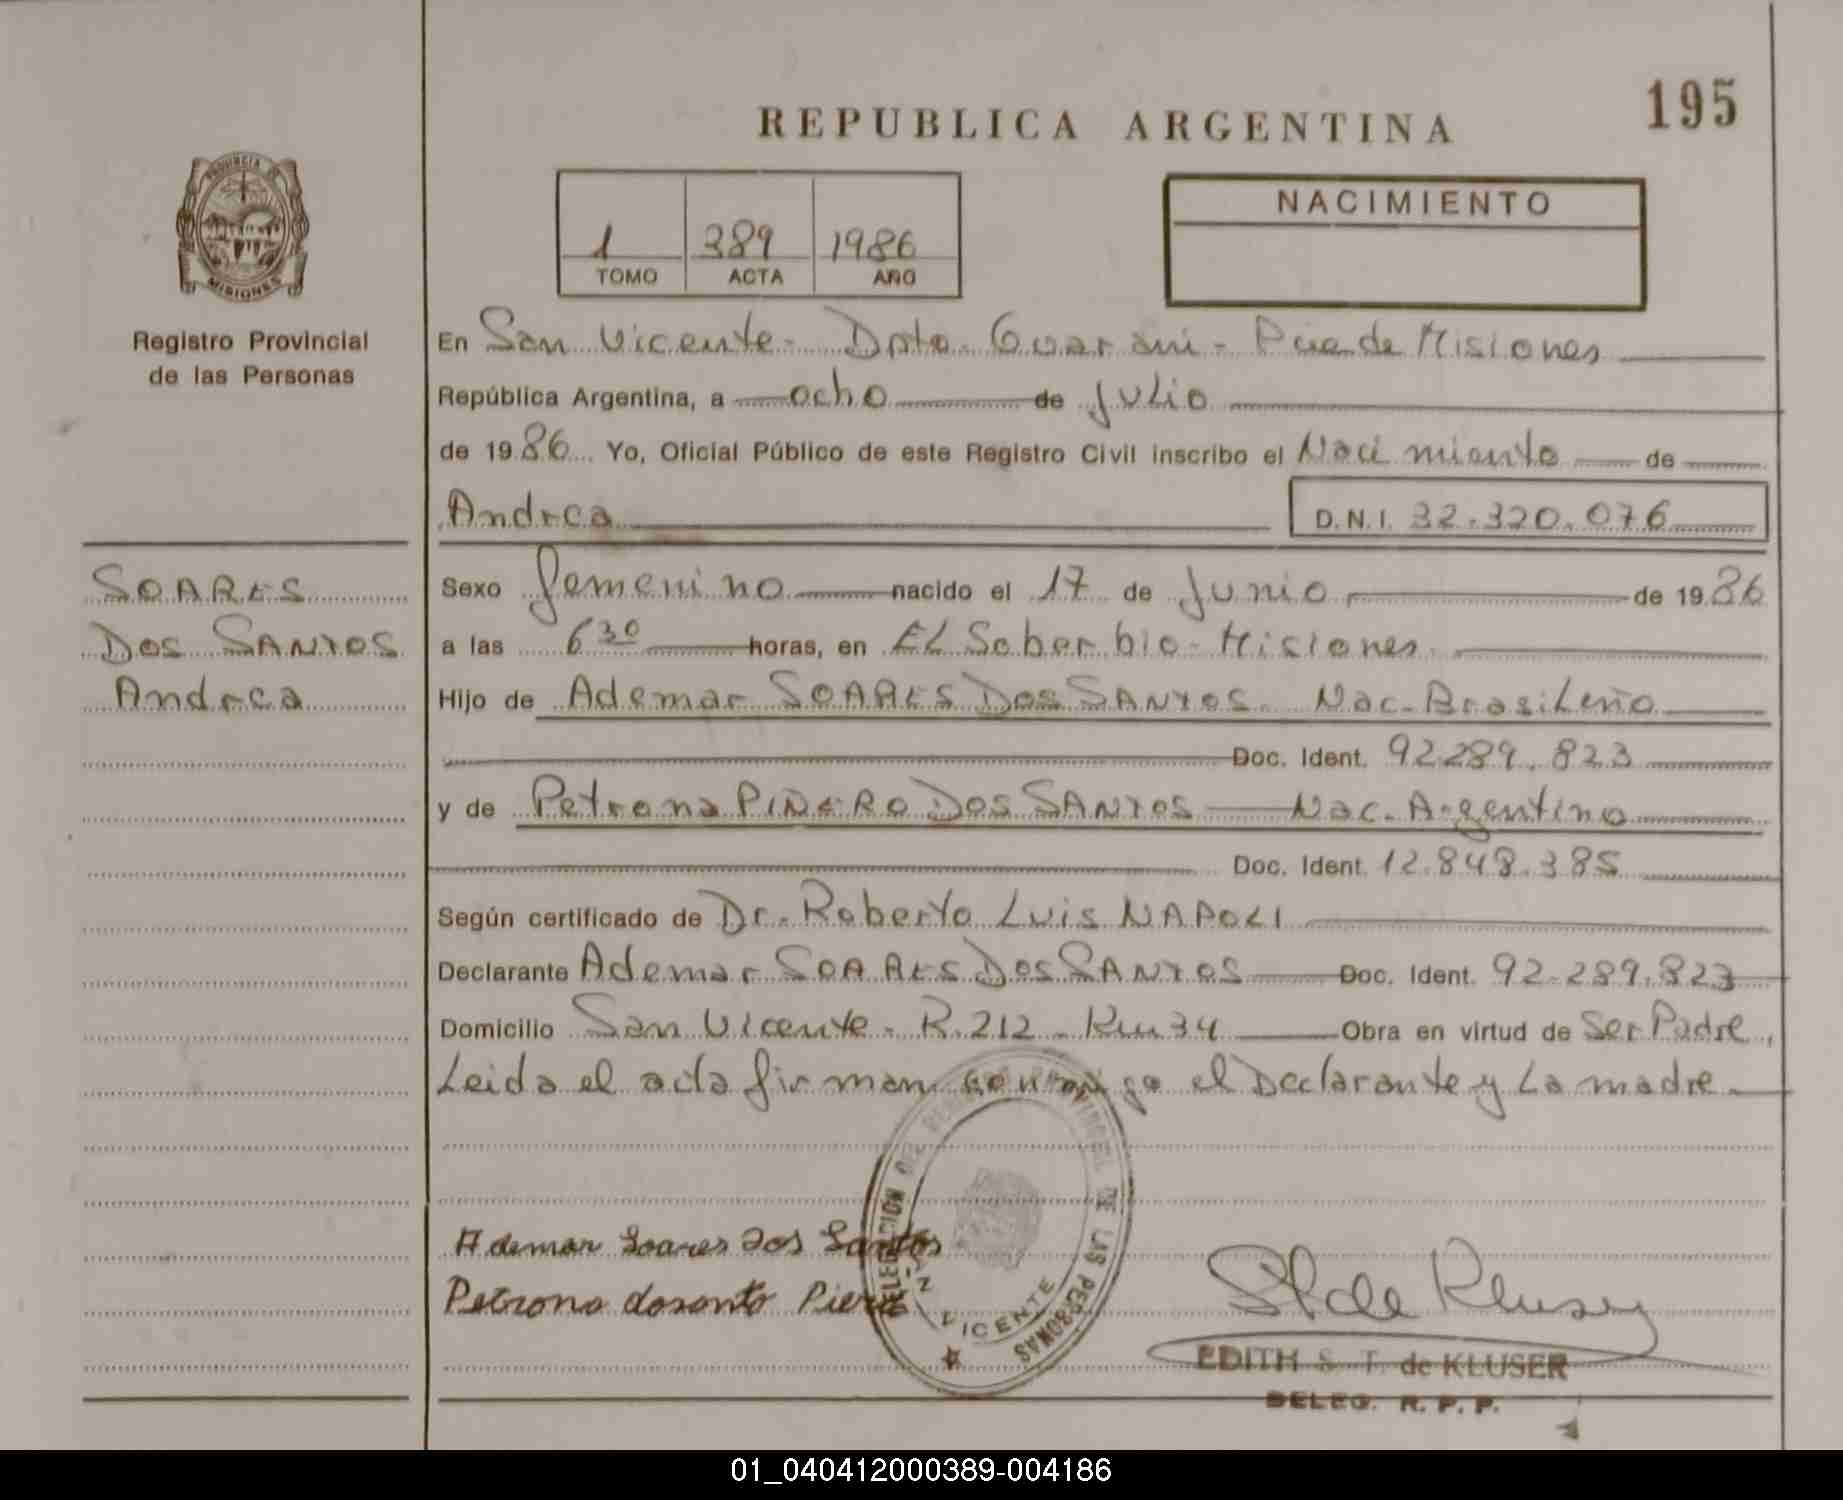 195
REPUBLICA ARGENTINA
PROVINCIA DE
MISIONES
Registro Provincial
de las Personas
1 389 1986
TOMO ACTA AÑO
NACIMIENTO
En San Vicente - Dpto. Guarani - Pcia de Misiones
República Argentina, a ocho de Julio
de 1986 Yo, Oficial Público de este Registro Civil inscribo el Nacimiento de
Andrea D.N.I. 32.320.076
SOARES
DOS SANTOS
Andrea
Sexo femenino nacido el 17 de Junio de 1986
a las 6 30 horas, en EL Soberbio - Misiones
Hijo de Ademar SOARES DOS SANTOS. Nac. Brasileño
Doc. Ident. 92.289.823
y de Petrona PIÑERO DOS SANTOS Nac. Argentino
Doc. Ident. 12.848.385
Según certificado de Dr. Roberto Luis NAPOLI
Declarante Ademar SOARES DOS SANTOS Doc. Ident. 92.289.823
Domicilio San Vicente - R. 212 - Km 34 Obra en virtud de Ser Padre,
Leida el acta firman conmigo el Declarante y La madre.
DELEGACION DEL REGISTRO PROVINCIAL DE LAS PERSONAS
VICENTE
Ademar Soares dos Santos
Petrona dosanto
EDITH S. T. de KLUSER
DELEG. R. P. P.
01_040412000389-004186